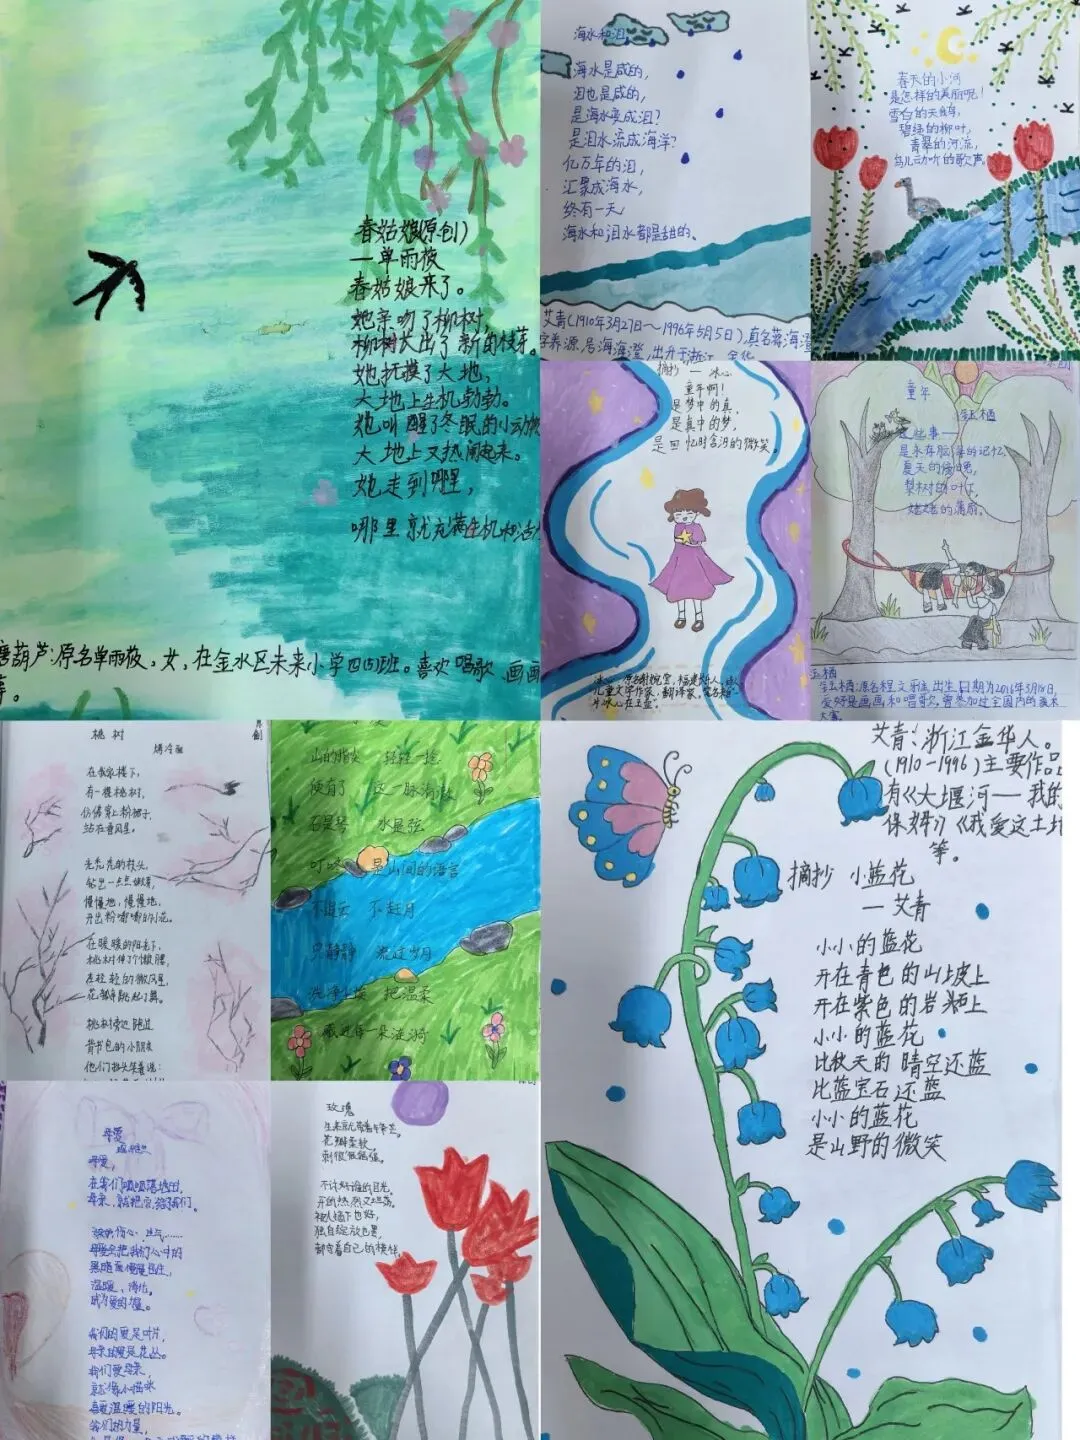 春姑娘(原创)
一单雨薇
春姑娘来了。
她亲吻了柳树,
柳树长出了新的枝芽。
她抚摸了大地,
大地上生机勃勃。
她叫醒了冬眠的小动物
大地上又热闹起来。
她走到哪里,
哪里就充满生机和活
唐葫芦:原名单雨薇,女,在金水区未来小学四(5)班。喜欢唱歌,画画
等。
海水和泪
海水是咸的,
泪也是咸的,
是海水变成泪?
是泪水流成海洋?
亿万年的泪,
汇聚成海水,
终有一天,
海水和泪水都是甜的。
艾青(1910年3月27日~1996年5月5日),真名蒋海澄
字养源,号海澄,出生于浙江 金华
春天的小河
是怎样的美丽呢!
雪白的天鹅,
碧绿的柳叶,
青翠的河流,
鸟儿动听的歌声。
摘抄 — 冰心
童年啊!
是梦中的真,
是真中的梦,
是回忆时含泪的微笑。
儿童文学作家,翻译家,
童年
是永存脑海的记忆
夏天的傍晚,
梨树的叶子,
姥姥的蒲扇。
原名程文乐,出生日期为2016年3月18日,
爱好是画画和唱歌,曾参加过全国内的美术
大赛
桃树
原创
在我家楼下,
有一棵桃树,
仿佛穿上粉裙子,
站在春风里。
光秃秃的枝头,
钻出一点点嫩芽,
慢慢地,慢慢地,
开出粉嘟嘟的小花。
在暖暖的阳光下,
桃树伸了个懒腰,
在轻轻的微风里,
花瓣跳起小舞。
桃树旁边跑过
背书包的小朋友
他们抬头笑着说:
山的指尖 轻轻一捻
便有了 这一脉清澈
石是琴 水是弦
叮咚 是山间的语言
不追云 不赶月
只静静 流过岁月
洗净尘埃 把温柔
藏进每一朵涟漪
母爱
母爱,
在我们呱呱落地时,
母亲,就把它给了我们。
温暖,清洁。
我们的爱是叶片,
母亲的爱是花丛。
我们爱母亲,
就像小猫咪
喜爱温暖的阳光。
玫瑰
生来就带着锋芒,
花瓣柔软,
刺很倔强。
不讨好谁的目光,
开的热烈又坦荡。
独自绽放也罢,
都守着自己的模样
艾青:浙江金华人。
(1910-1996)主要作品
有《大堰河——我的
保姆》《我爱这土地
等。
摘抄 小蓝花
—艾青
小小的蓝花
开在青色的山坡上
开在紫色的岩石上
小小的蓝花
比秋天的晴空还蓝
比蓝宝石还蓝
小小的蓝花
是山野的微笑